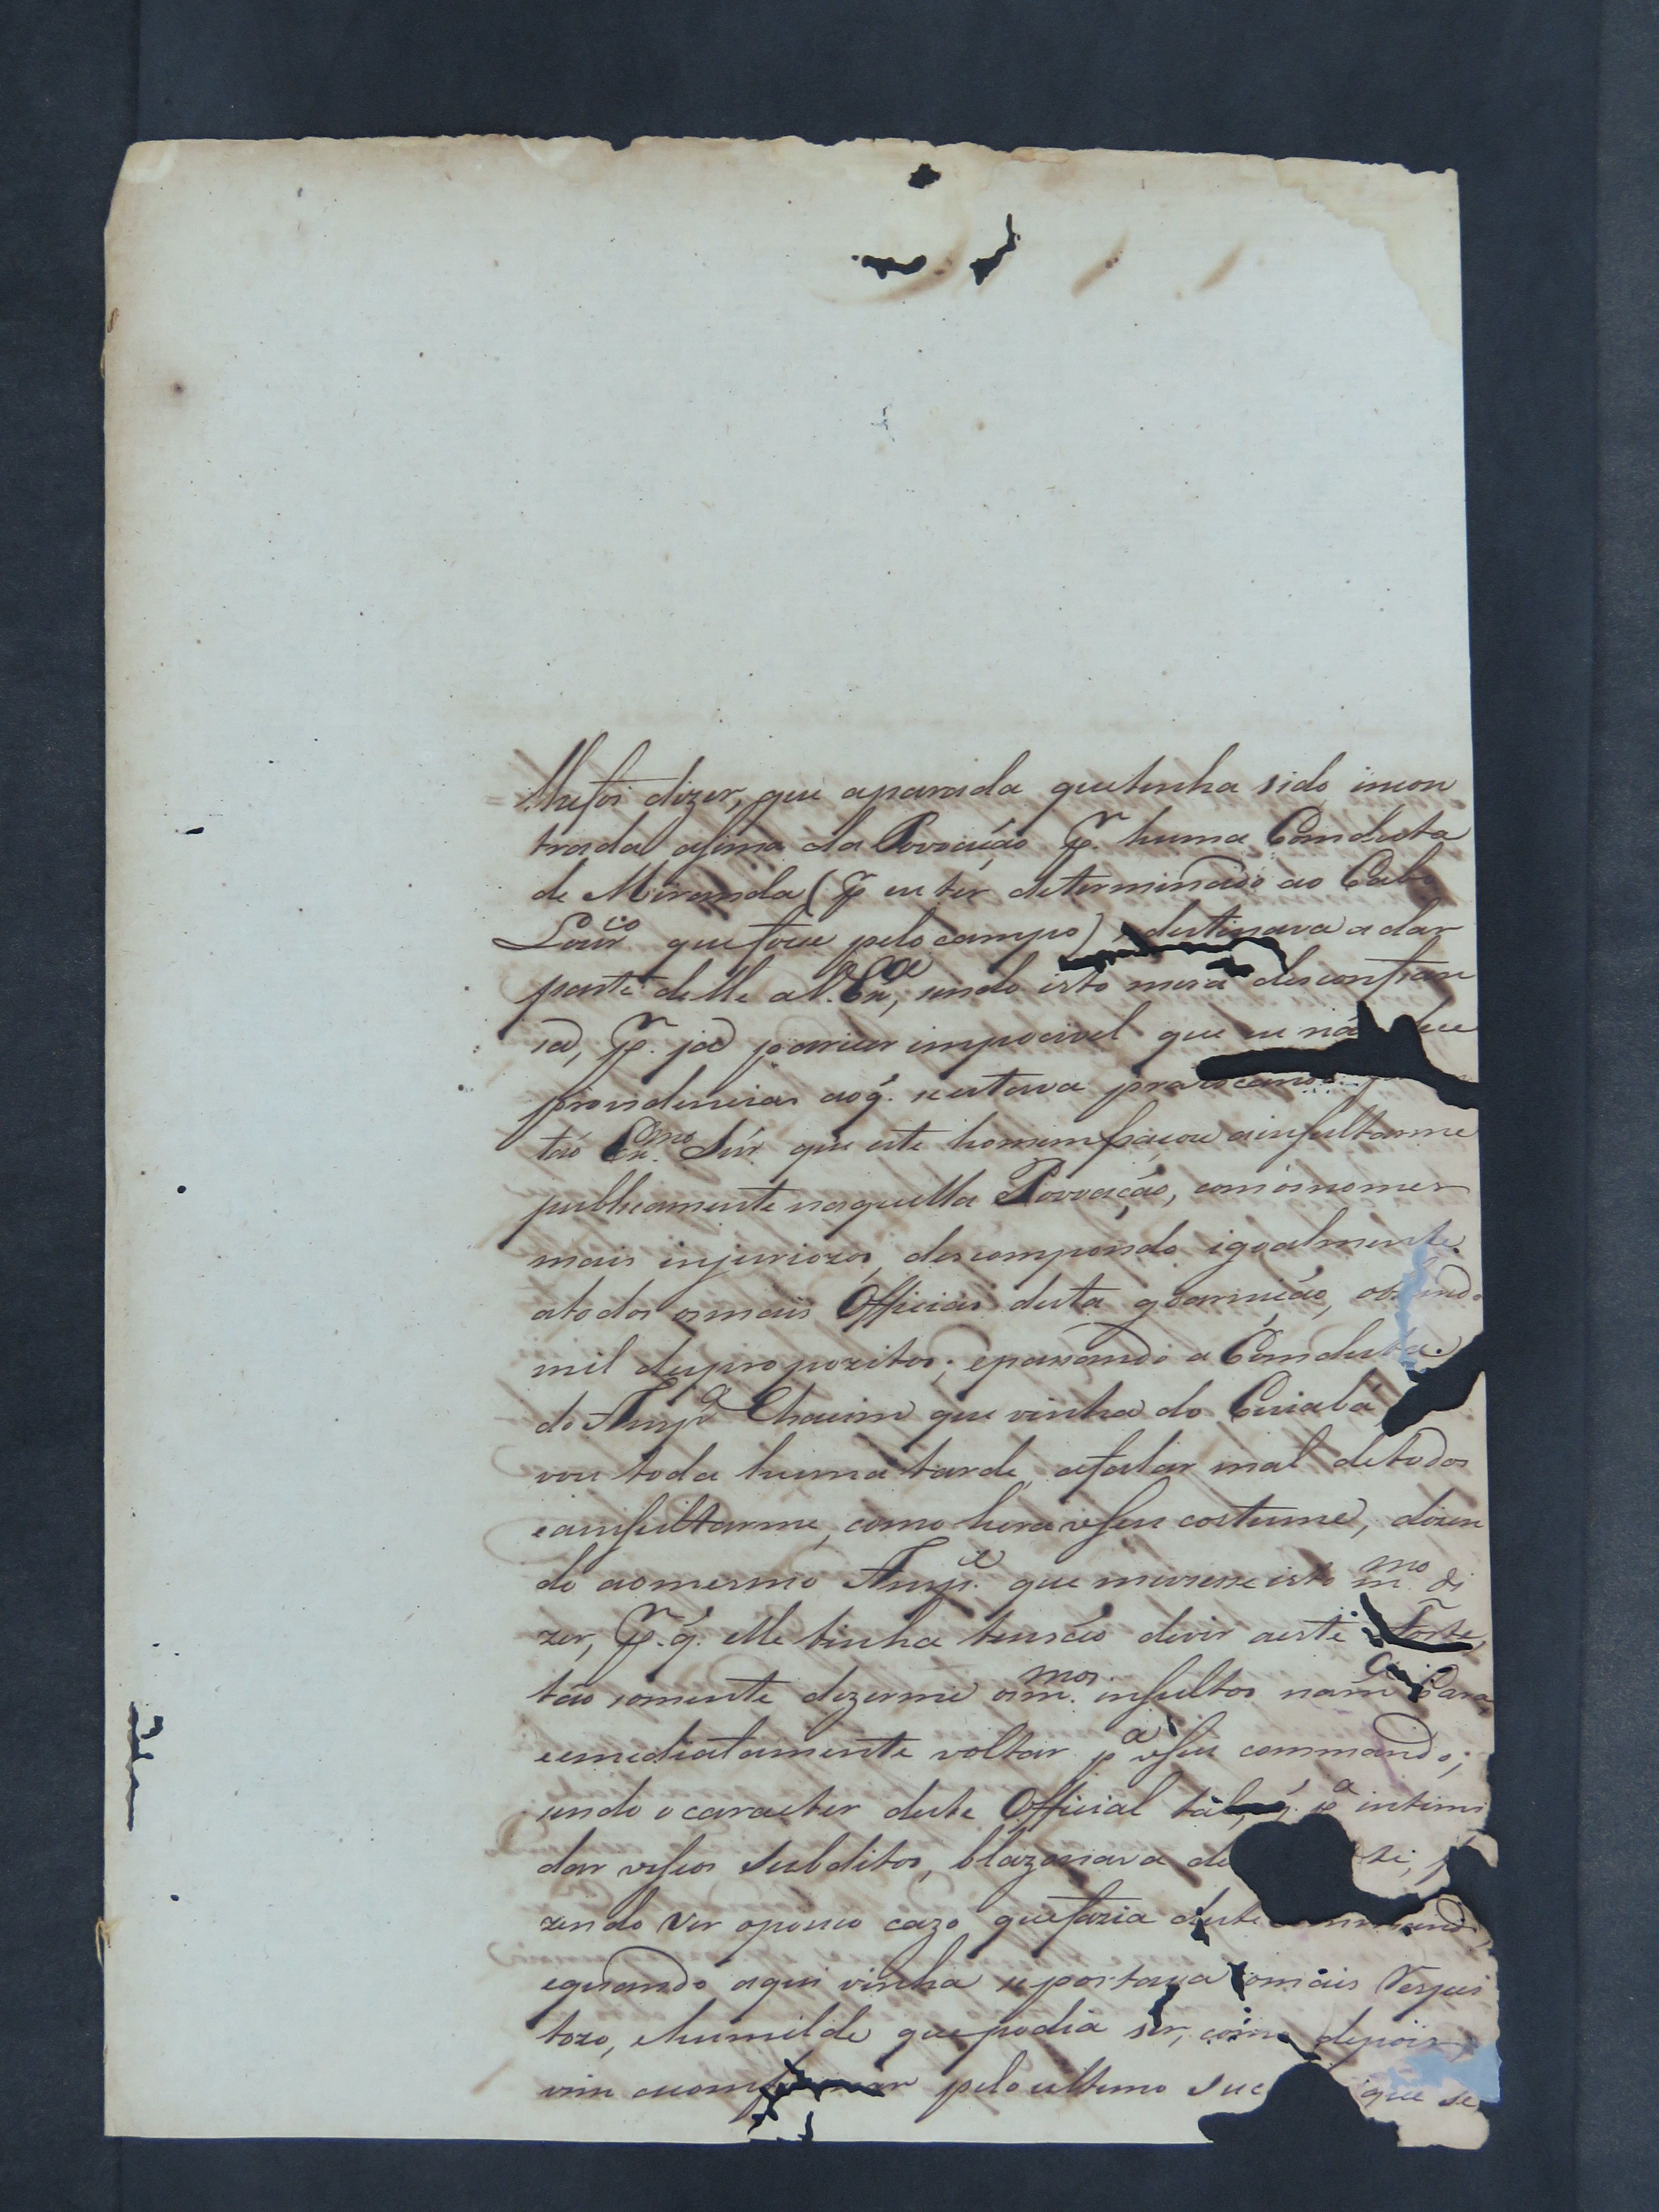 lhefoi dizer, que aparada quetinha sido incon
trada asima da Povoação p.r huma Condusta
de Miranda (p.r eu ter determinado ao Cabo
Lour.ço que foce pelo campo) destinava a dar
parte delle a V. Ex.ª, sendo isto mera desconfian
sa, p.r já parecer impocivel que eu não
providencias aoq. seestava praticando
tão Ex.mo Snr. que este homem paçou ainsultarme
publicamente naquella Povoação, com os nomes
mais injuriozos, descompondo igoalmente
atodos osmais Officiais desta goarnição,
mil despropozitos; epassando a Condusta
do Anspª Chacim que vinha do Cuiabá
vou toda huma tarde, afalar mal detodos
eainsultarme, como hera oseu costume, dizen
do aomesmo Ansp.ª que meviesse isto m.mo di
zer, p.r q. elle tinha tensão devir aeste Forte,
tão somente dizerme osm.mos insultos na m.ª Cara,
eemediatamente voltar p.ª oseu commando;
sendo o caracter deste Official tal, q. p.ª intimi
dar osseos Subditos, blazonava de
zendo ver opouco cazo quefazia deste Commando,
equando aqui vinha seportava omais Respei
tozo, ehumilde que podia ser, como depois
vim aconfirmar pelo ultimo que se